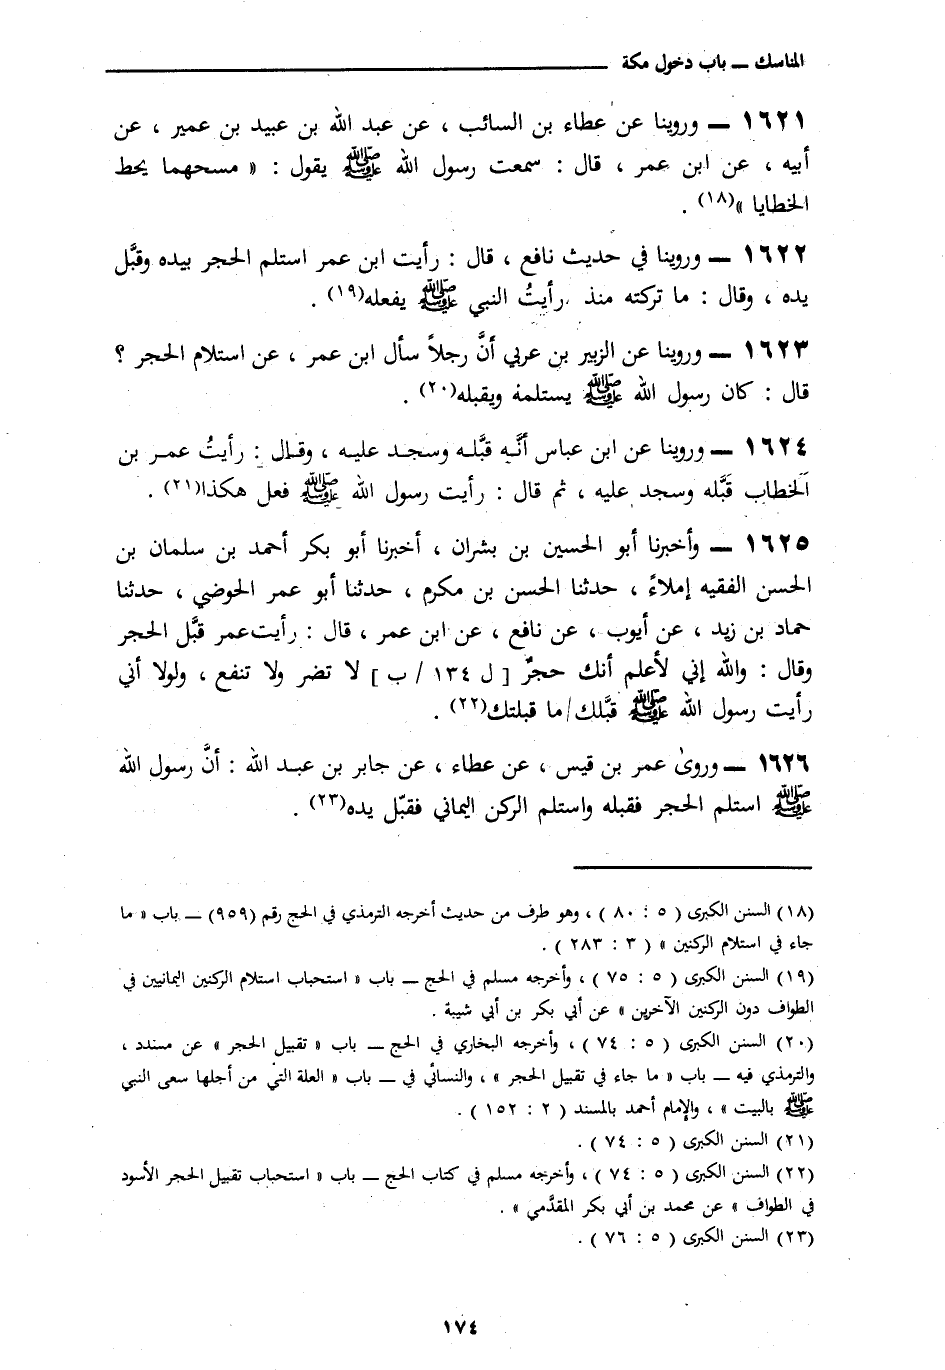 المناسك ــ باب دخول مكة
١٦٢١ ــ وروينا عن عطاء بن السائب ، عن عبد الله بن عبيد بن عمير ، عن
أبيه ، عن ابن عمر ، قال : سمعت رسول الله ﷺ يقول : « مسحهما يحط
الخطايا »(١٨) .
١٦٢٢ ــ وروينا في حديث نافع ، قال : رأيت ابن عمر استلم الحجر بيده وقبَّل
يده ، وقال : ما تركته منذ رأيتُ النبي ﷺ يفعله(١٩) .
١٦٢٣ ــ وروينا عن الزبير بن عربي أنَّ رجلاً سأل ابن عمر ، عن استلام الحجر ؟
قال : كان رسول الله ﷺ يستلمه ويقبله(٢٠) .
١٦٢٤ ــ وروينا عن ابن عباس أنَّه قبَّله وسجد عليه ، وقال : رأيتُ عمر بن
الخطاب قَبَّله وسجد عليه ، ثم قال : رأيت رسول الله ﷺ فعل هكذا(٢١) .
١٦٢٥ ــ وأخبرنا أبو الحسين بن بشران ، أخبرنا أبو بكر أحمد بن سلمان بن
الحسن الفقيه إملاءً ، حدثنا الحسن بن مكرم ، حدثنا أبو عمر الحوضي ، حدثنا
حماد بن زيد ، عن أيوب ، عن نافع ، عن ابن عمر ، قال : رأيت عمر قبَّل الحجر
وقال : والله إني لأعلم أنك حجرٌ [ ل ١٣٤ / ب ] لا تضر ولا تنفع ، ولولا أني
رأيت رسول الله ﷺ قبَّلك/ما قبلتك(٢٢) .
١٦٢٦ ــ وروىٰ عمر بن قيس ، عن عطاء ، عن جابر بن عبد الله : أنَّ رسول الله
ﷺ استلم الحجر فقبله واستلم الركن اليماني فقبّل يده(٢٣) .
(١٨) السنن الكبرى ( ٥ : ٨٠ ) ، وهو طرف من حديث أخرجه الترمذي في الحج رقم (٩٥٩) ــ باب « ما
جاء في استلام الركنين » ( ٣ : ٢٨٣ ) .
(١٩) السنن الكبرى ( ٥ : ٧٥ ) ، وأخرجه مسلم في الحج ــ باب « استحباب استلام الركنين اليمانيين في
الطواف دون الركنين الآخرين » عن أبي بكر بن أبي شيبة .
(٢٠) السنن الكبرى ( ٥ : ٧٤ ) ، وأخرجه البخاري في الحج ــ باب « تقبيل الحجر » عن مسدد ،
والترمذي فيه ــ باب « ما جاء في تقبيل الحجر » ، والنسائي في ــ باب « العلة التي من أجلها سعى النبي
ﷺ بالبيت » ، والإمام أحمد بالمسند ( ٢ : ١٥٢ ) .
(٢١) السنن الكبرى ( ٥ : ٧٤ ) .
(٢٢) السنن الكبرى ( ٥ : ٧٤ ) ، وأخرجه مسلم في كتاب الحج ــ باب « استحباب تقبيل الحجر الأسود
في الطواف » عن محمد بن أبي بكر المقدَّمي » .
(٢٣) السنن الكبرى ( ٥ : ٧٦ ) .
١٧٤